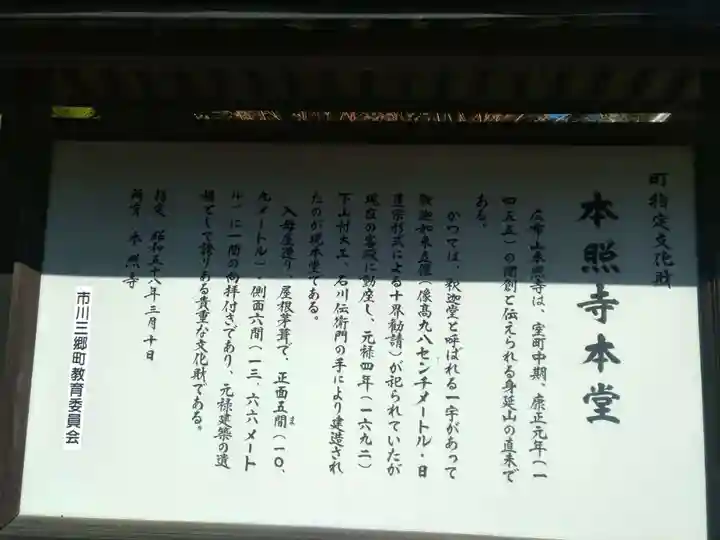 町指定文化財
本照寺本堂
広布山本照寺は、室町中期、康正元年(一
四五五)の開創と伝えられる身延山の直末で
ある。
かつては、釈迦堂と呼ばれる一宇があって
釈迦如来座像(像高九八センチメートル・日
蓮宗形式による十界勧請)が祀られていたが
現在の客殿に動座し、元禄四年(一六九二)
下山村大工、石川伝衛門の手により建造され
たのが現本堂である。
入母屋造り、屋根茅葺で、正面五間(一〇、
九メートル)側面六間(一三、六六メート
ル)に一間の向拝付きであり、元禄建築の遺
構として誇りある貴重な文化財である。
指定 昭和五十八年三月十日
所有 本照寺
市川三郷町教育委員会